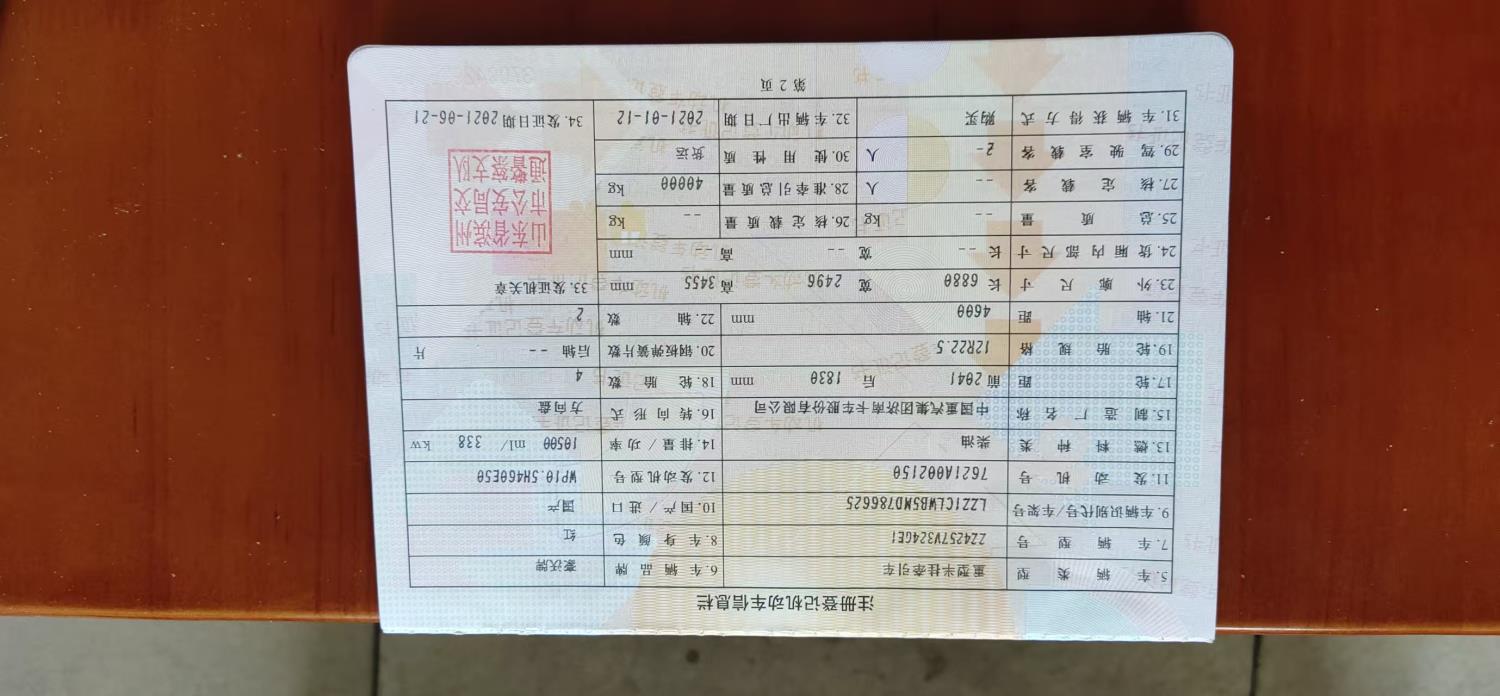 注册登记机动车信息栏
5.车辆类型 重型半挂牵引车 6.车辆品牌 豪沃牌
7.车辆型号 ZZ4257V324GE1 8.车身颜色 红
9.车辆识别代号/车架号 LZZ1CLWB5MD786625 10.国产/进口 国产
11.发动机号 7621A002150 12.发动机型号 WP10.5H460E50
13.燃料种类 柴油 14.排量/功率 10500 ml/ 338 kw
15.制造厂名称 中国重汽集团济南卡车股份有限公司 16.转向形式 方向盘
17.轮距 前 2041 后 1830 mm 18.轮胎数 4
19.轮胎规格 12R22.5 20.钢板弹簧片数 后轴 -- 片
21.轴距 4600 mm 22.轴数 2
23.外廓尺寸 长 6880 宽 2496 高 3455 mm 33.发证机关章
24.货厢内部尺寸 长 -- 宽 -- 高 -- mm
25.总质量 -- kg 26.核定载质量 -- kg
27.核定载客 -- 人 28.准牵引总质量 40000 kg
29.驾驶室载客 2- 人 30.使用性质 货运
山东省滨州
市公安局交
通警察支队
31.车辆获得方式 购买 32.车辆出厂日期 2021-01-12 34.发证日期 2021-06-21
第 2 页